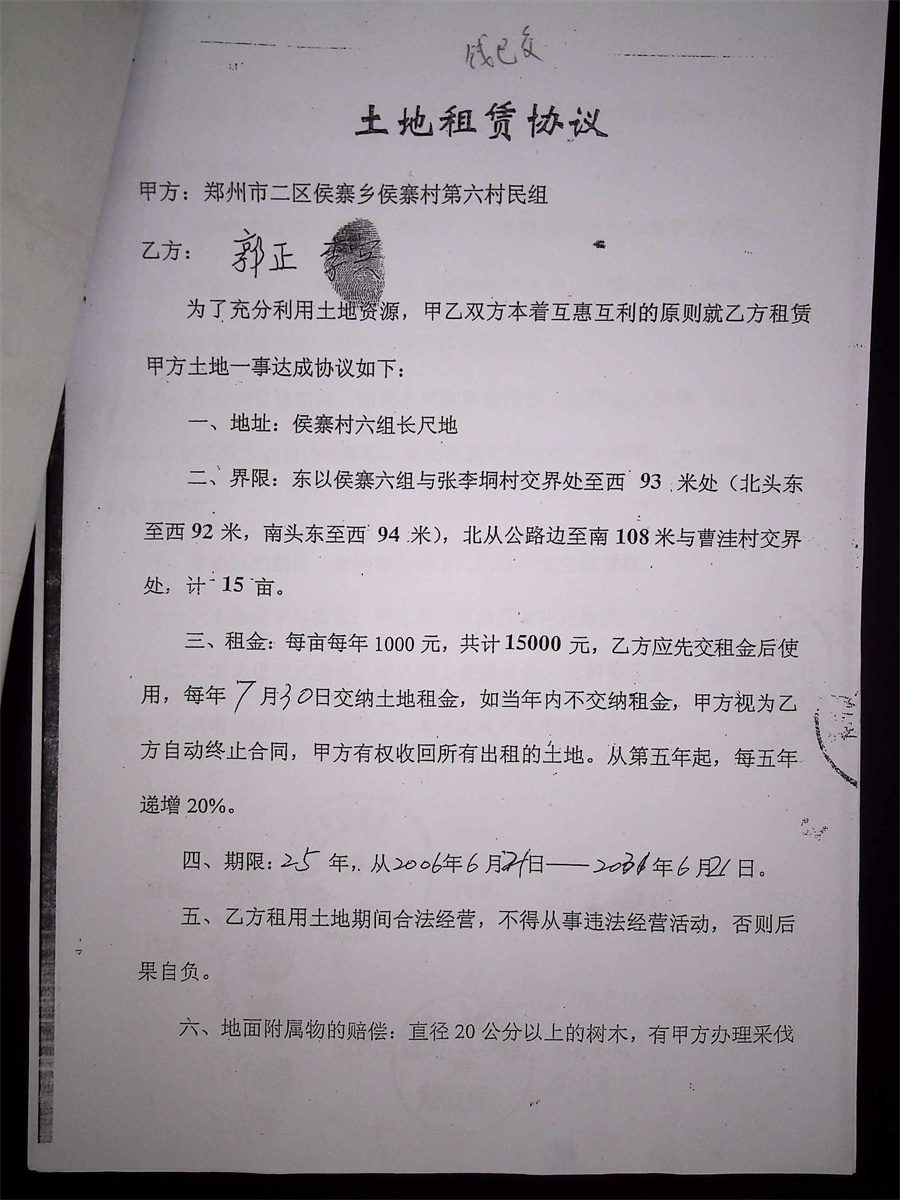 钱已交
土地租赁协议
甲方：郑州市二区侯寨乡侯寨村第六村民组
乙方： 郭正 李兵
为了充分利用土地资源，甲乙双方本着互惠互利的原则就乙方租赁
甲方土地一事达成协议如下：
一、地址：侯寨村六组长尺地
二、界限：东以侯寨六组与张李垌村交界处至西 93 米处（北头东
至西 92 米，南头东至西 94 米），北从公路边至南 108 米与曹洼村交界
处，计 15 亩。
三、租金：每亩每年 1000 元，共计 15000 元，乙方应先交租金后使
用，每年 7 月 30 日交纳土地租金，如当年内不交纳租金，甲方视为乙
方自动终止合同，甲方有权收回所有出租的土地。从第五年起，每五年
递增 20%。
四、期限：25 年，从 2006 年 6 月 21 日——2031 年 6 月 21 日。
五、乙方租用土地期间合法经营，不得从事违法经营活动，否则后
果自负。
六、地面附属物的赔偿：直径 20 公分以上的树木，有甲方办理采伐